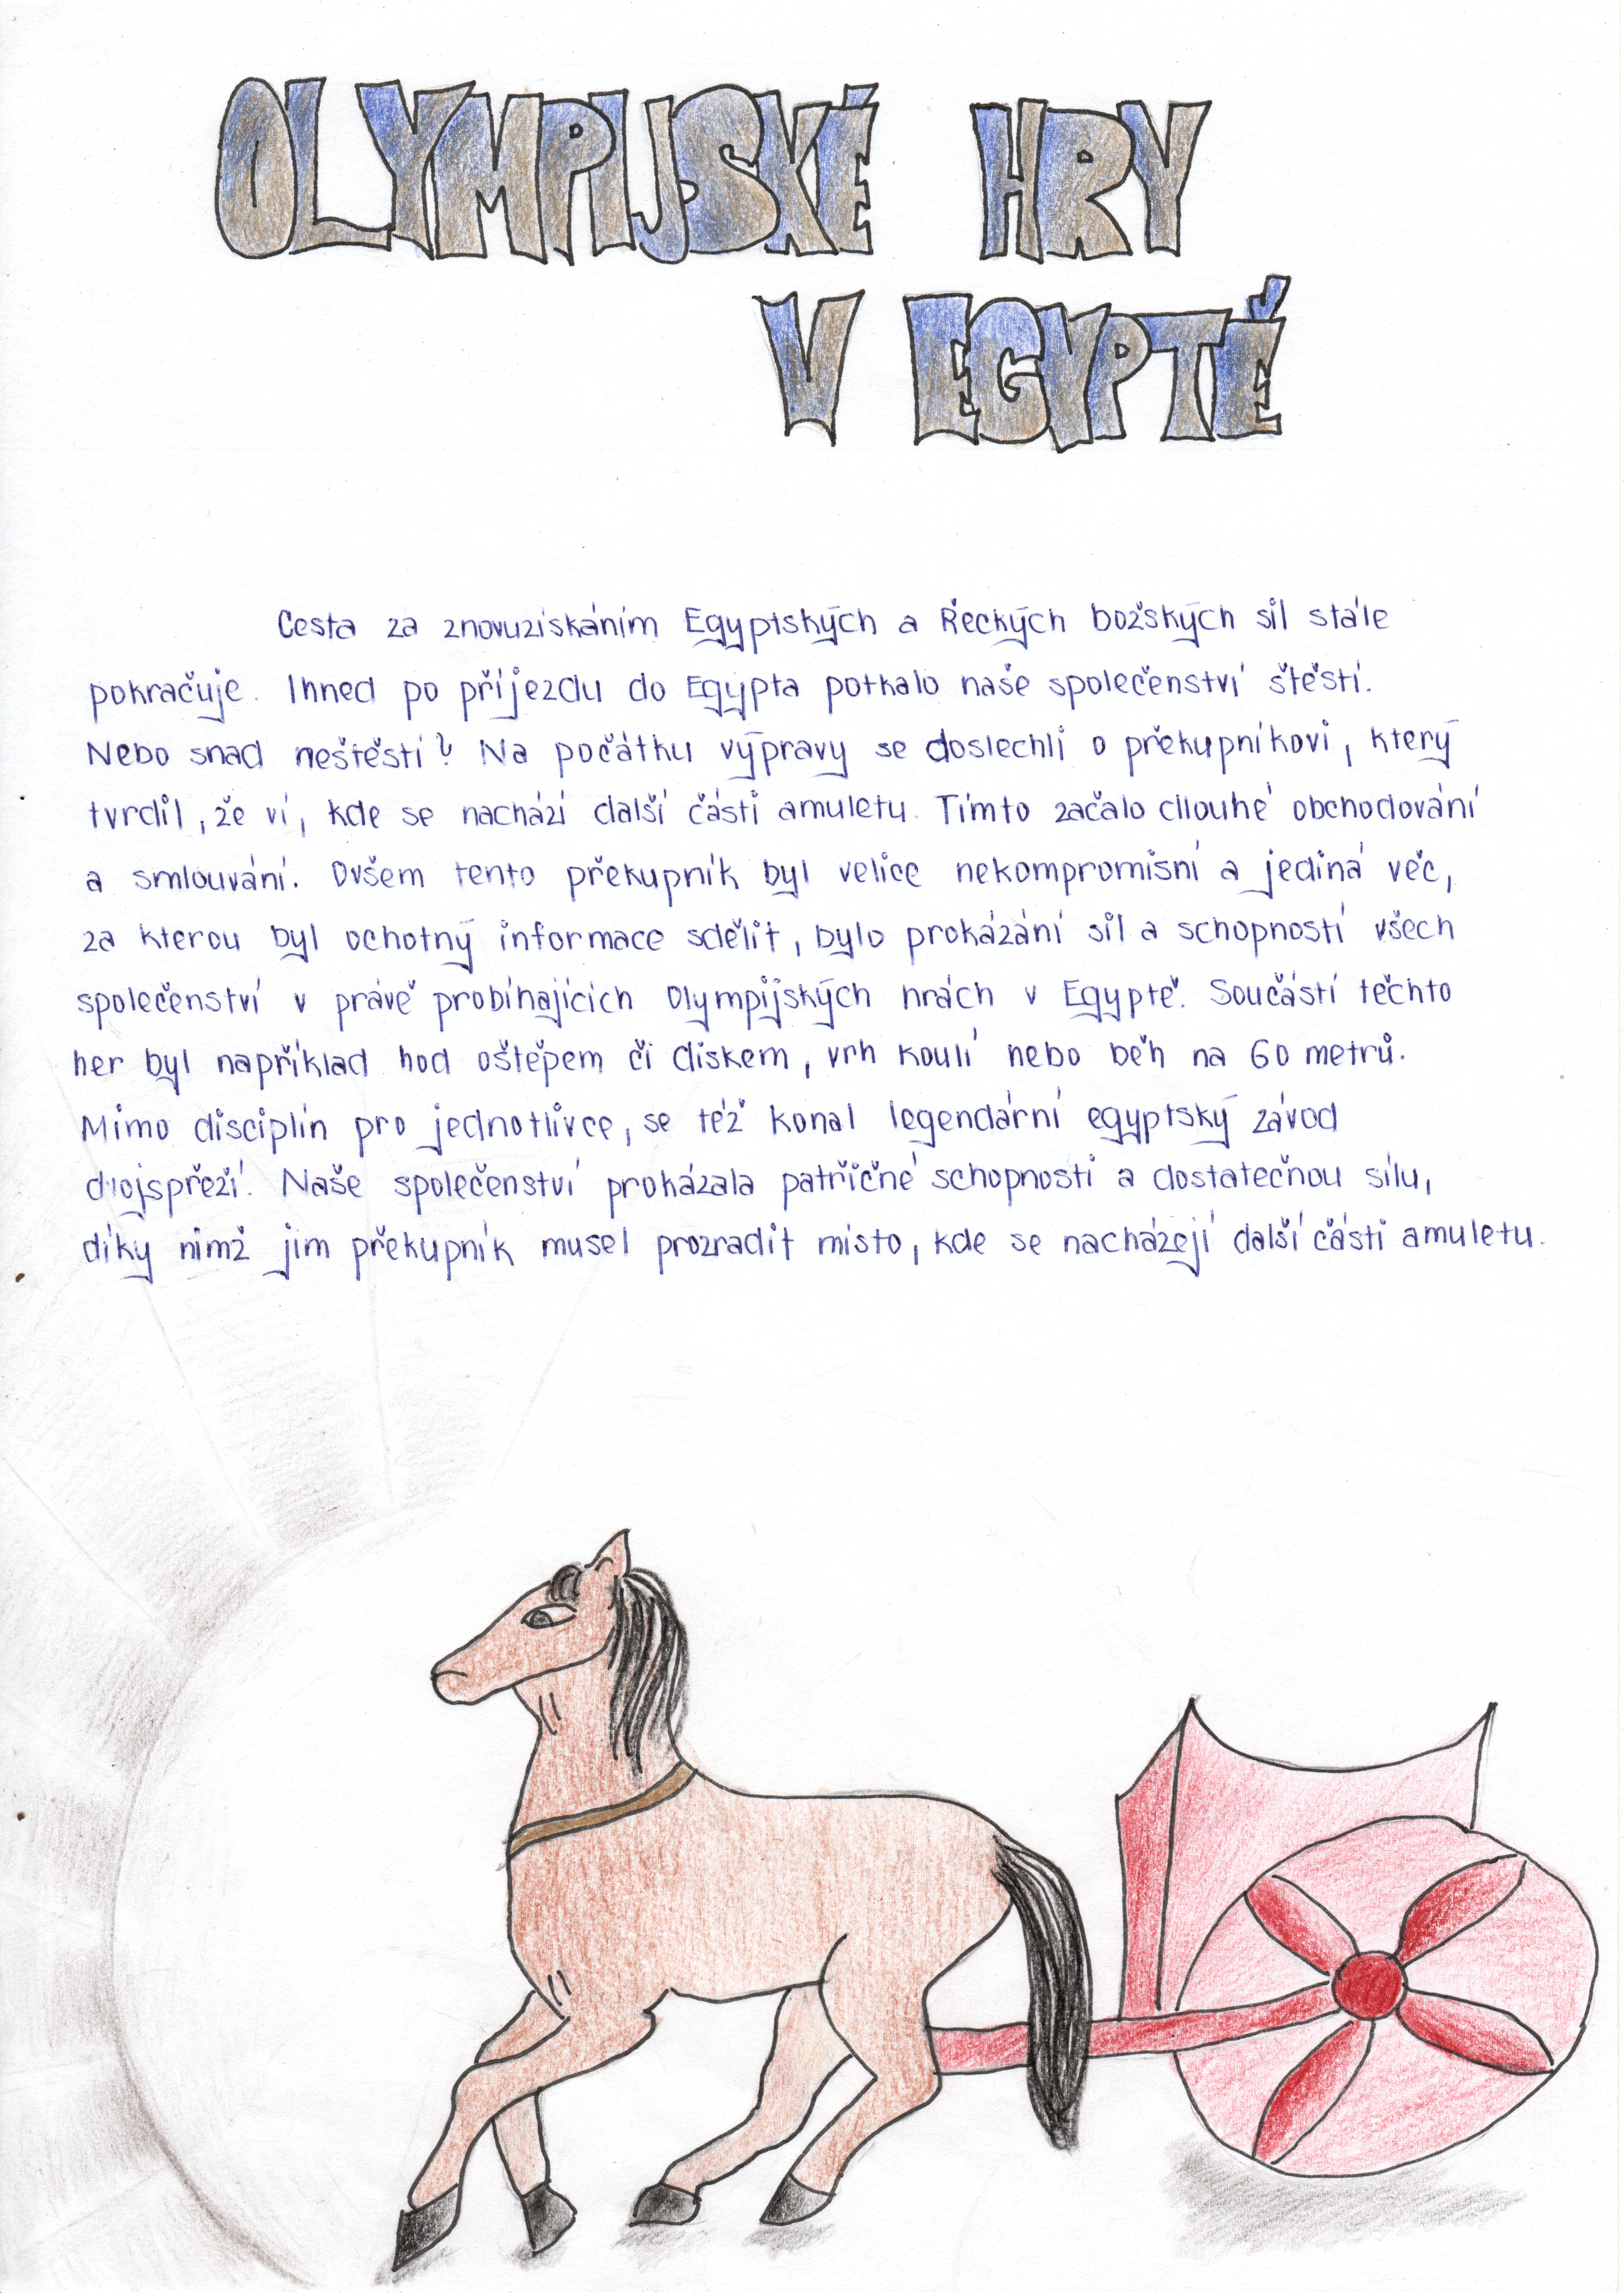 OLYMPIJSKÉ HRY
V EGYPTĚ
Cesta za znovuzískáním Egyptských a Řeckých božských sil stále
pokračuje. Ihned po příjezdu do Egypta potkalo naše společenství štěstí.
Nebo snad neštěstí? Na počátku výpravy se doslechli o překupníkovi, který
tvrdil, že ví, kde se nachází další části amuletu. Tímto začalo dlouhé obchodování
a smlouvání. Ovšem tento překupník byl velice nekompromisní a jediná věc,
za kterou byl ochotný informace sdělit, bylo prokázání sil a schopností všech
společenství v právě probíhajících Olympijských hrách v Egyptě. Součástí těchto
her byl například hod oštěpem či diskem, vrh koulí nebo běh na 60 metrů.
Mimo disciplín pro jednotlivce, se též konal legendární egyptský závod
dvojspřeží. Naše společenství prokázala patřičné schopnosti a dostatečnou sílu,
díky nimž jim překupník musel prozradit místo, kde se nacházejí další části amuletu.